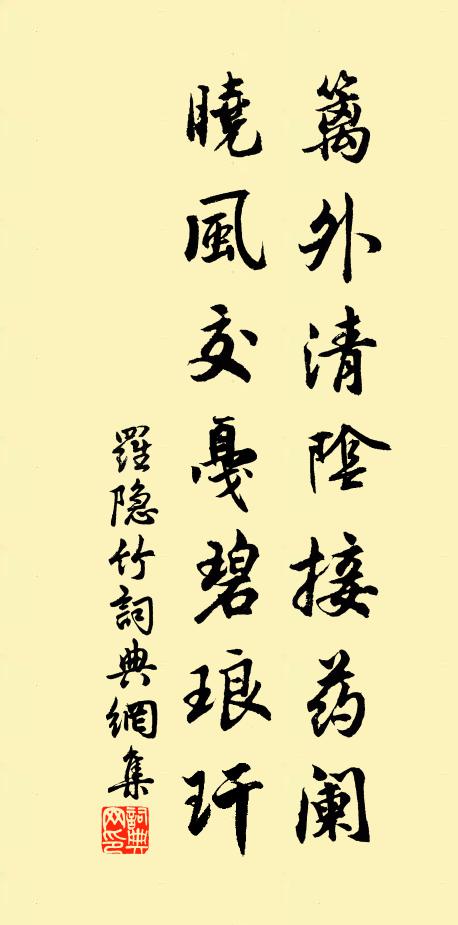 篱外清陰接药阑
曉風交戛碧琅玕
羅隐竹詞典網集
詞典网印